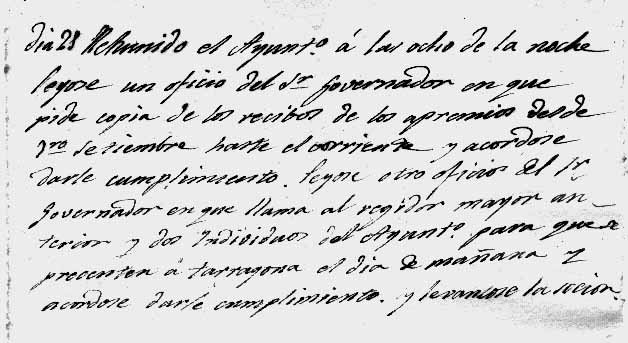 dia 28 Rehunido el Ayunt.º á las ocho de la noche
leyose un oficio del Sr. Governador en que
pide copia de los recibos de los apremios desde
1ro Setiembre haste el corriente y acordose
darle cumplimiento. leyose otro oficio del Sr.
Governador en que llama al regidor mayor an-
terior y dos Individuos del Ayunt.º para que se
precenten á tarragona el dia de mañana y
acordose darle cumplimiento. y levantose la secion.